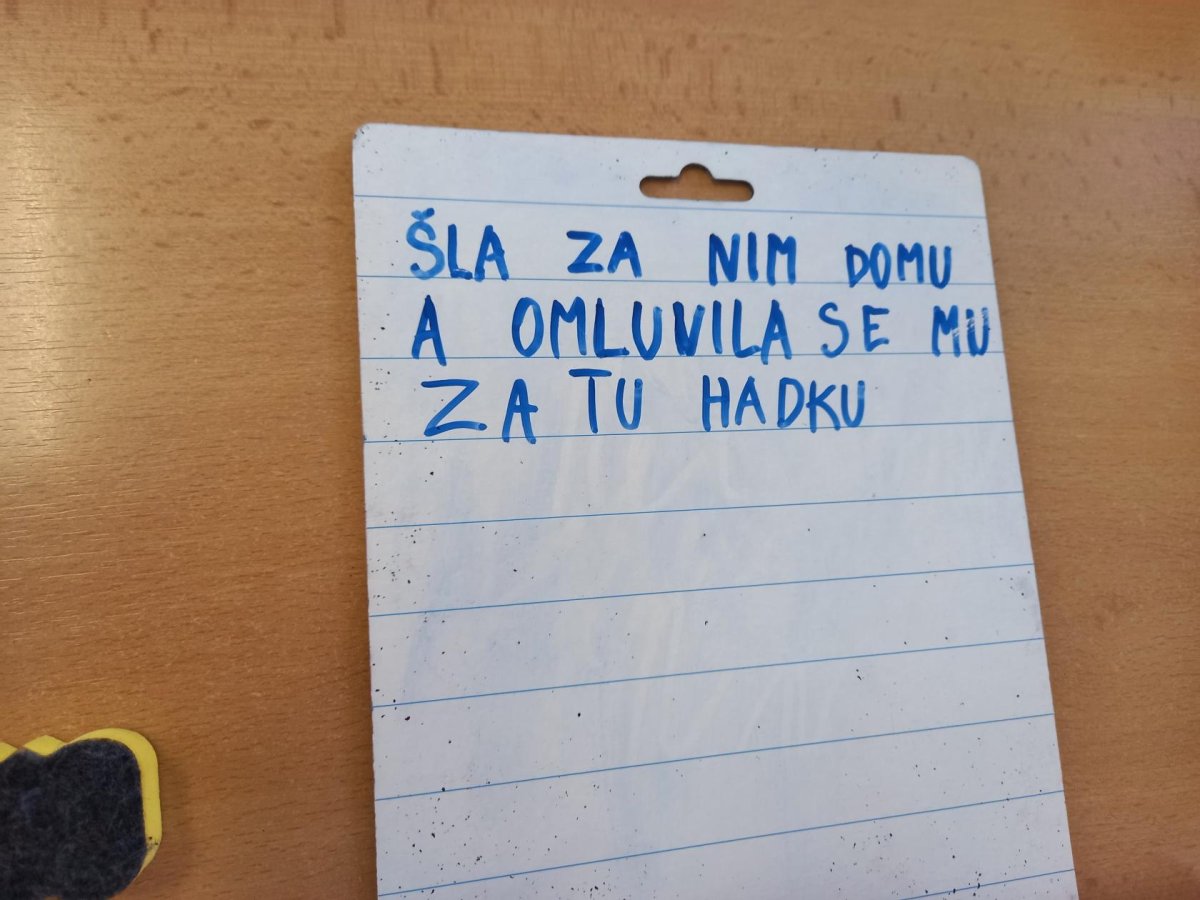 ŠLA ZA NIM DOMU
A OMLUVILA SE MU
ZA TU HADKU